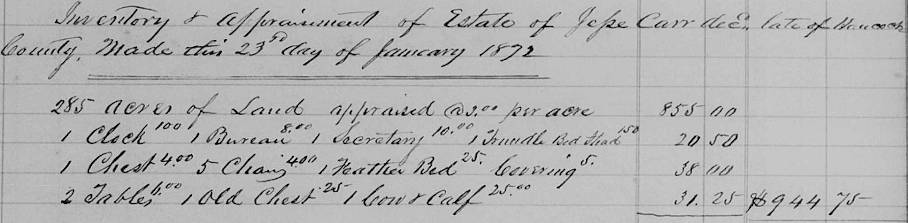 Inventory & Appraisment of Estate of Jesse Carr decd. late of Hancock
County, Made this 23rd day of January 1872
285 acres of Land appraised @3.00 per acre 855 00
1 Clock 1 00 1 Bureau 8.00 1 Secretary 10.00 1 Trundle Bed Stead 1 50 20 50
1 Chest 4.00 5 Chairs 4.00 1 Feather Bed 25. Covering 5. 38 00
2 Tables 6.00 1 Old Chest 25 1 Cow & Calf 25.00 31. 25 $944 75